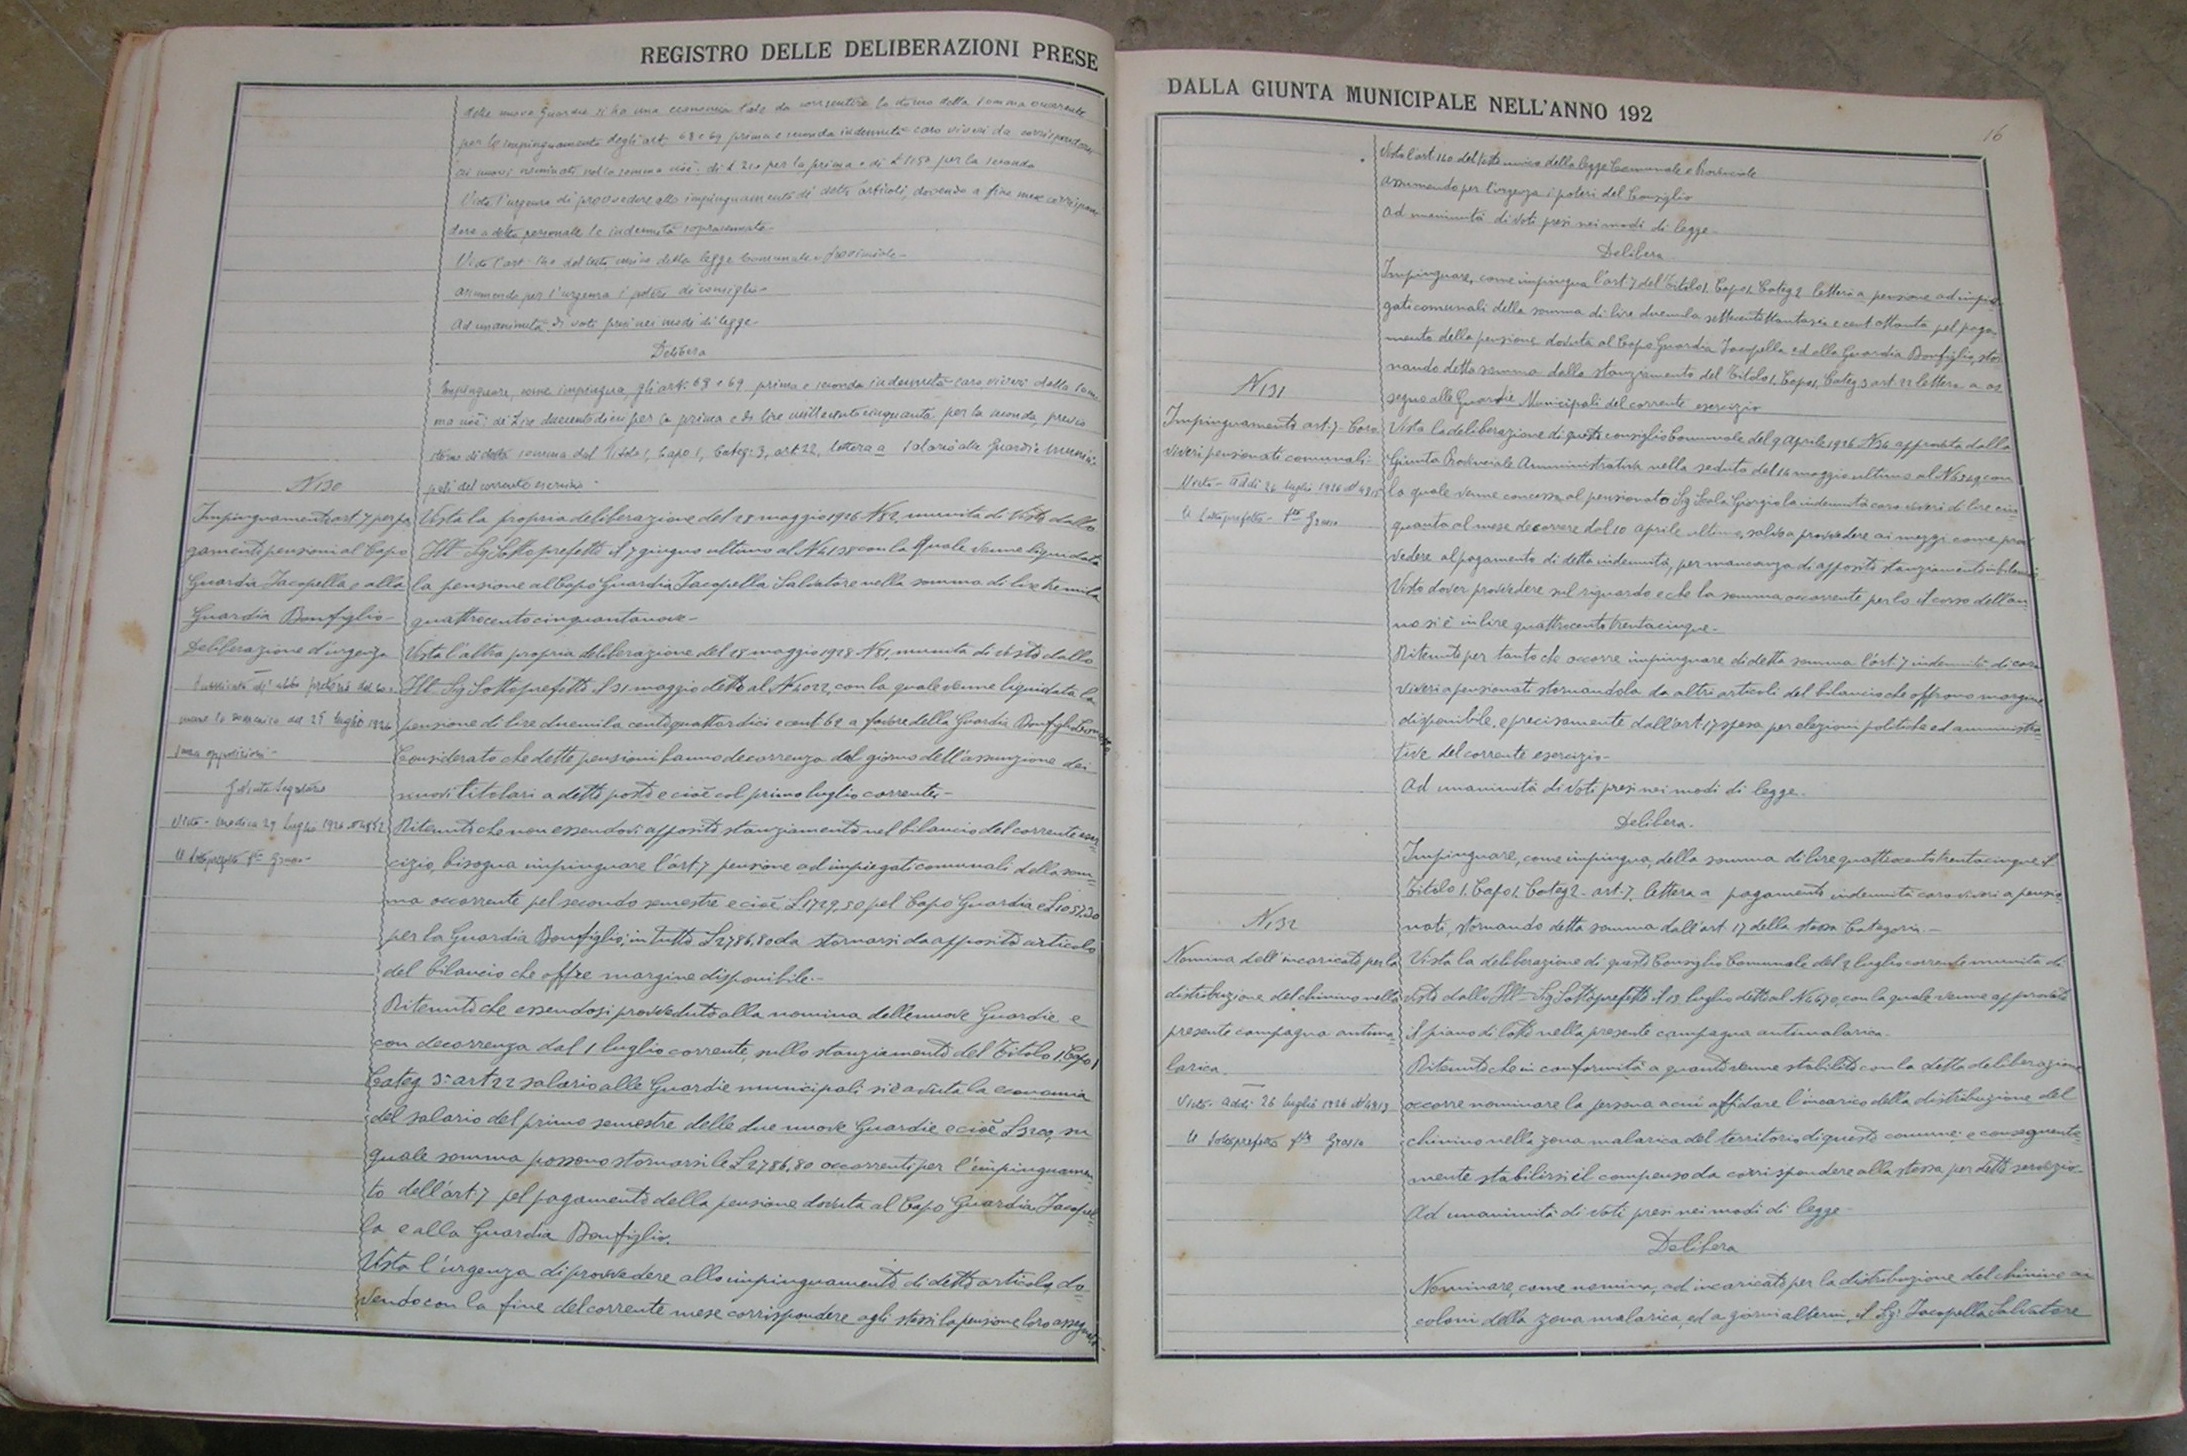 REGISTRO DELLE DELIBERAZIONI PRESE
delle nuove Guardie si ha una economia tale da consentire lo storno della somma occorrente
per lo impinguamento degli art. 68 e 69 prima e seconda indennità caro viveri da corrispondere
ai nuovi nominati nella somma cioè di £ 210 per la prima e di £ 1150 per la seconda
Vista l'urgenza di provvedere allo impinguamento di detti articoli, dovendo a fine mese corrispon
dere a detto personale le indennità sopracennate
Visto l'art. 140 del testo unico della legge Comunale e Provinciale
assumendo per l'urgenza i poteri di consiglio
Ad unanimità di voti presi nei modi di legge
Delibera
Impinguare, come impingua, gli art. 68 e 69 prima e seconda indennità caro viveri della som
ma cioè di Lire duecentodieci per la prima e di lire millecentocinquanta per la seconda, previo
storno di detta somma dal Titolo 1, Capo 1, Categ: 3, art. 22, lettera a salario alle Guardie munici
pali del corrente esercizio
N 130
Impinguamento art. 7 per pa
gamento pensioni al Capo
Guardia Iacopella e alla
Guardia Bonfiglio
Deliberazione d'urgenza
Pubblicata all'albo pretorio dal Co
mune la domenica del 25 luglio 1926
senza opposizioni
Il Segretario
Visto - Modica 29 Luglio 1926 N 4852
Il Sottoprefetto Grasso
Vista la propria deliberazione del 28 maggio 1926 N 82, munita di Visto dallo
Ill Sig Sottoprefetto il 7 giugno ultimo al N 4138 con la quale venne liquidata
la pensione al Capo Guardia Iacopella Salvatore nella somma di lire tremila
quattrocentocinquantanove
Vista l'altra propria deliberazione del 28 maggio 1928 N 81, munita di visto dallo
Ill Sig Sottoprefetto il 31 maggio detto al N 4022, con la quale venne liquidata la
pensione di lire duemila centoquattordici e cent 62 a favore della Guardia Bonfiglio
Considerato che dette pensioni hanno decorrenza dal giorno dell'assunzione dei
nuovi titolari a detti posti e cioè col primo luglio corrente
Ritenuto che non essendovi apposito stanziamento nel bilancio del corrente eser
cizio, bisogna impinguare l'art 7 pensione ad impiegati comunali della som
ma occorrente pel secondo semestre e cioè £ 1729,50 pel Capo Guardia e £ 1057,30
per la Guardia Bonfiglio; in tutto £ 2786,80 da stornarsi da apposito articolo
del bilancio che offre margine disponibile
Ritenuto che essendosi provveduto alla nomina delle nuove Guardie e
con decorrenza dal 1 luglio corrente, sullo stanziamento del Titolo 1 Capo 1
Categ 3ª art 22 salario alle Guardie municipali si è avuta la economia
del salario del primo semestre delle due nuove Guardie e cioè £ 3200, su
quale somma possono stornarsi le £ 2786,80 occorrenti per l'impinguamen
to dell'art. 7 pel pagamento della pensione dovuta al Capo Guardia Iacopel
la e alla Guardia Bonfiglio.
Vista l'urgenza di provvedere allo impinguamento di detto articolo, do
vendo con la fine del corrente mese corrispondere agli stessi la pensione loro assegnata
DALLA GIUNTA MUNICIPALE NELL'ANNO 192
16
Visto l'art. 140 del testo unico della legge Comunale e Provinciale
Assumendo per l'urgenza i poteri del Consiglio
Ad unanimità di voti presi nei modi di legge
Delibera
Impinguare, come impingua l'art. 7 del Titolo 1, Capo 1, Categ 2 lettera a pensione ad impie
gati comunali della somma di lire duemila settecentottantasei e cent ottanta pel paga
mento della pensione dovuta al Capo Guardia Iacopella ed alla Guardia Bonfiglio, stor
nando detta somma dallo stanziamento del Titolo 1, Capo 1, Categ 3 art. 22 lettera a as
segno alle Guardie Municipali del corrente esercizio
N 131
Impinguamento art. 7 - Caro
viveri pensionati comunali
Visto - addì 26 luglio 1926 N 4915
Il Sottoprefetto Grasso
Vista la deliberazione di questo consiglio Comunale del 9 Aprile 1926 N 34 approvata dalla
Giunta Provinciale Amministrativa nella seduta del 14 maggio ultimo al con
la quale venne concessa al pensionato Sig Scala Giorgio la indennità caro viveri di lire cin
quanta al mese decorrere dal 10 aprile ultimo, salvo a provvedere ai mezzi come prov
vedere al pagamento di detta indennità, per mancanza di apposito stanziamento in bilancio
Visto dover provvedere sul riguardo e che la somma occorrente per lo il corso dell'an
no si è in lire quattrocentotrentacinque
Ritenuto per tanto che occorre impinguare di detta somma l'art. 7 indennità di caro
viveri a pensionati stornandola da altri articoli del bilancio che offrono margine
disponibile, e precisamente dall'art. 17 spesa per elezioni politiche ed amministra
tive del corrente esercizio
Ad unanimità di voti presi nei modi di legge.
Delibera.
Impinguare, come impingua, della somma di lire quattrocentotrentacinque il
Titolo 1. Capo 1. Categ 2 - art. 7, lettera a pagamento indennità caroviveri a pensio
nati, stornando detta somma dall'art. 17 della stessa Categoria.
N 132
Nomina dell'incaricato per la
distribuzione del chinino nella
presente campagna antima
larica.
Visto - addì 26 luglio 1926 N 4913
Il Sottoprefetto Grasso
Vista la deliberazione di questo Consiglio Comunale del 2 luglio corrente munita di
visto dallo Ill Sig Sottoprefetto il 13 luglio detto al N 4670, con la quale venne approvato
il piano di lotta nella presente campagna antimalarica.
Ritenuto che in conformità a quanto venne stabilito con la detta deliberazione
occorre nominare la persona a cui affidare l'incarico della distribuzione del
chinino nella zona malarica del territorio di questo comune e conseguente
mente stabilirsi il compenso da corrispondere alla stessa per detto servizio
Ad unanimità di voti presi nei modi di legge
Delibera
Nominare, come nomina, ad incaricato per la distribuzione del chinino ai
coloni della zona malarica, ed a giorni alterni, il Sig: Iacopella Salvatore